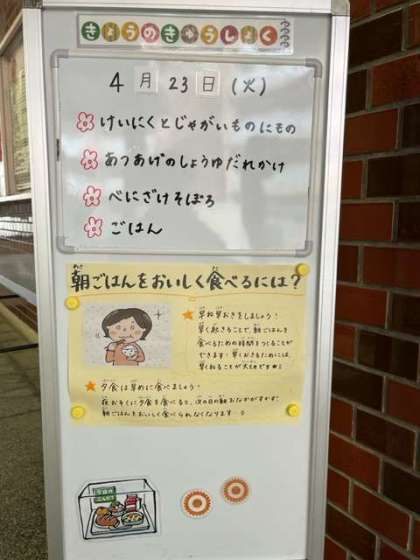 きょうのきゅうしょく
4月23日(火)
けいにくとじゃがいものにもの
あつあげのしょうゆだれかけ
べにざけそぼろ
ごはん
朝ごはんをおいしく食べるには?
早ね早おきをしましょう!
早く起きることで、朝ごはんを
食べるための時間をつくることが
できます!早くおきるためには、
早くねることが大切です!
夕食は早めに食べましょう!
夜おそくに夕食を食べると、次の日の朝おなかがすかず、
朝ごはんをおいしく食べられなくなります。